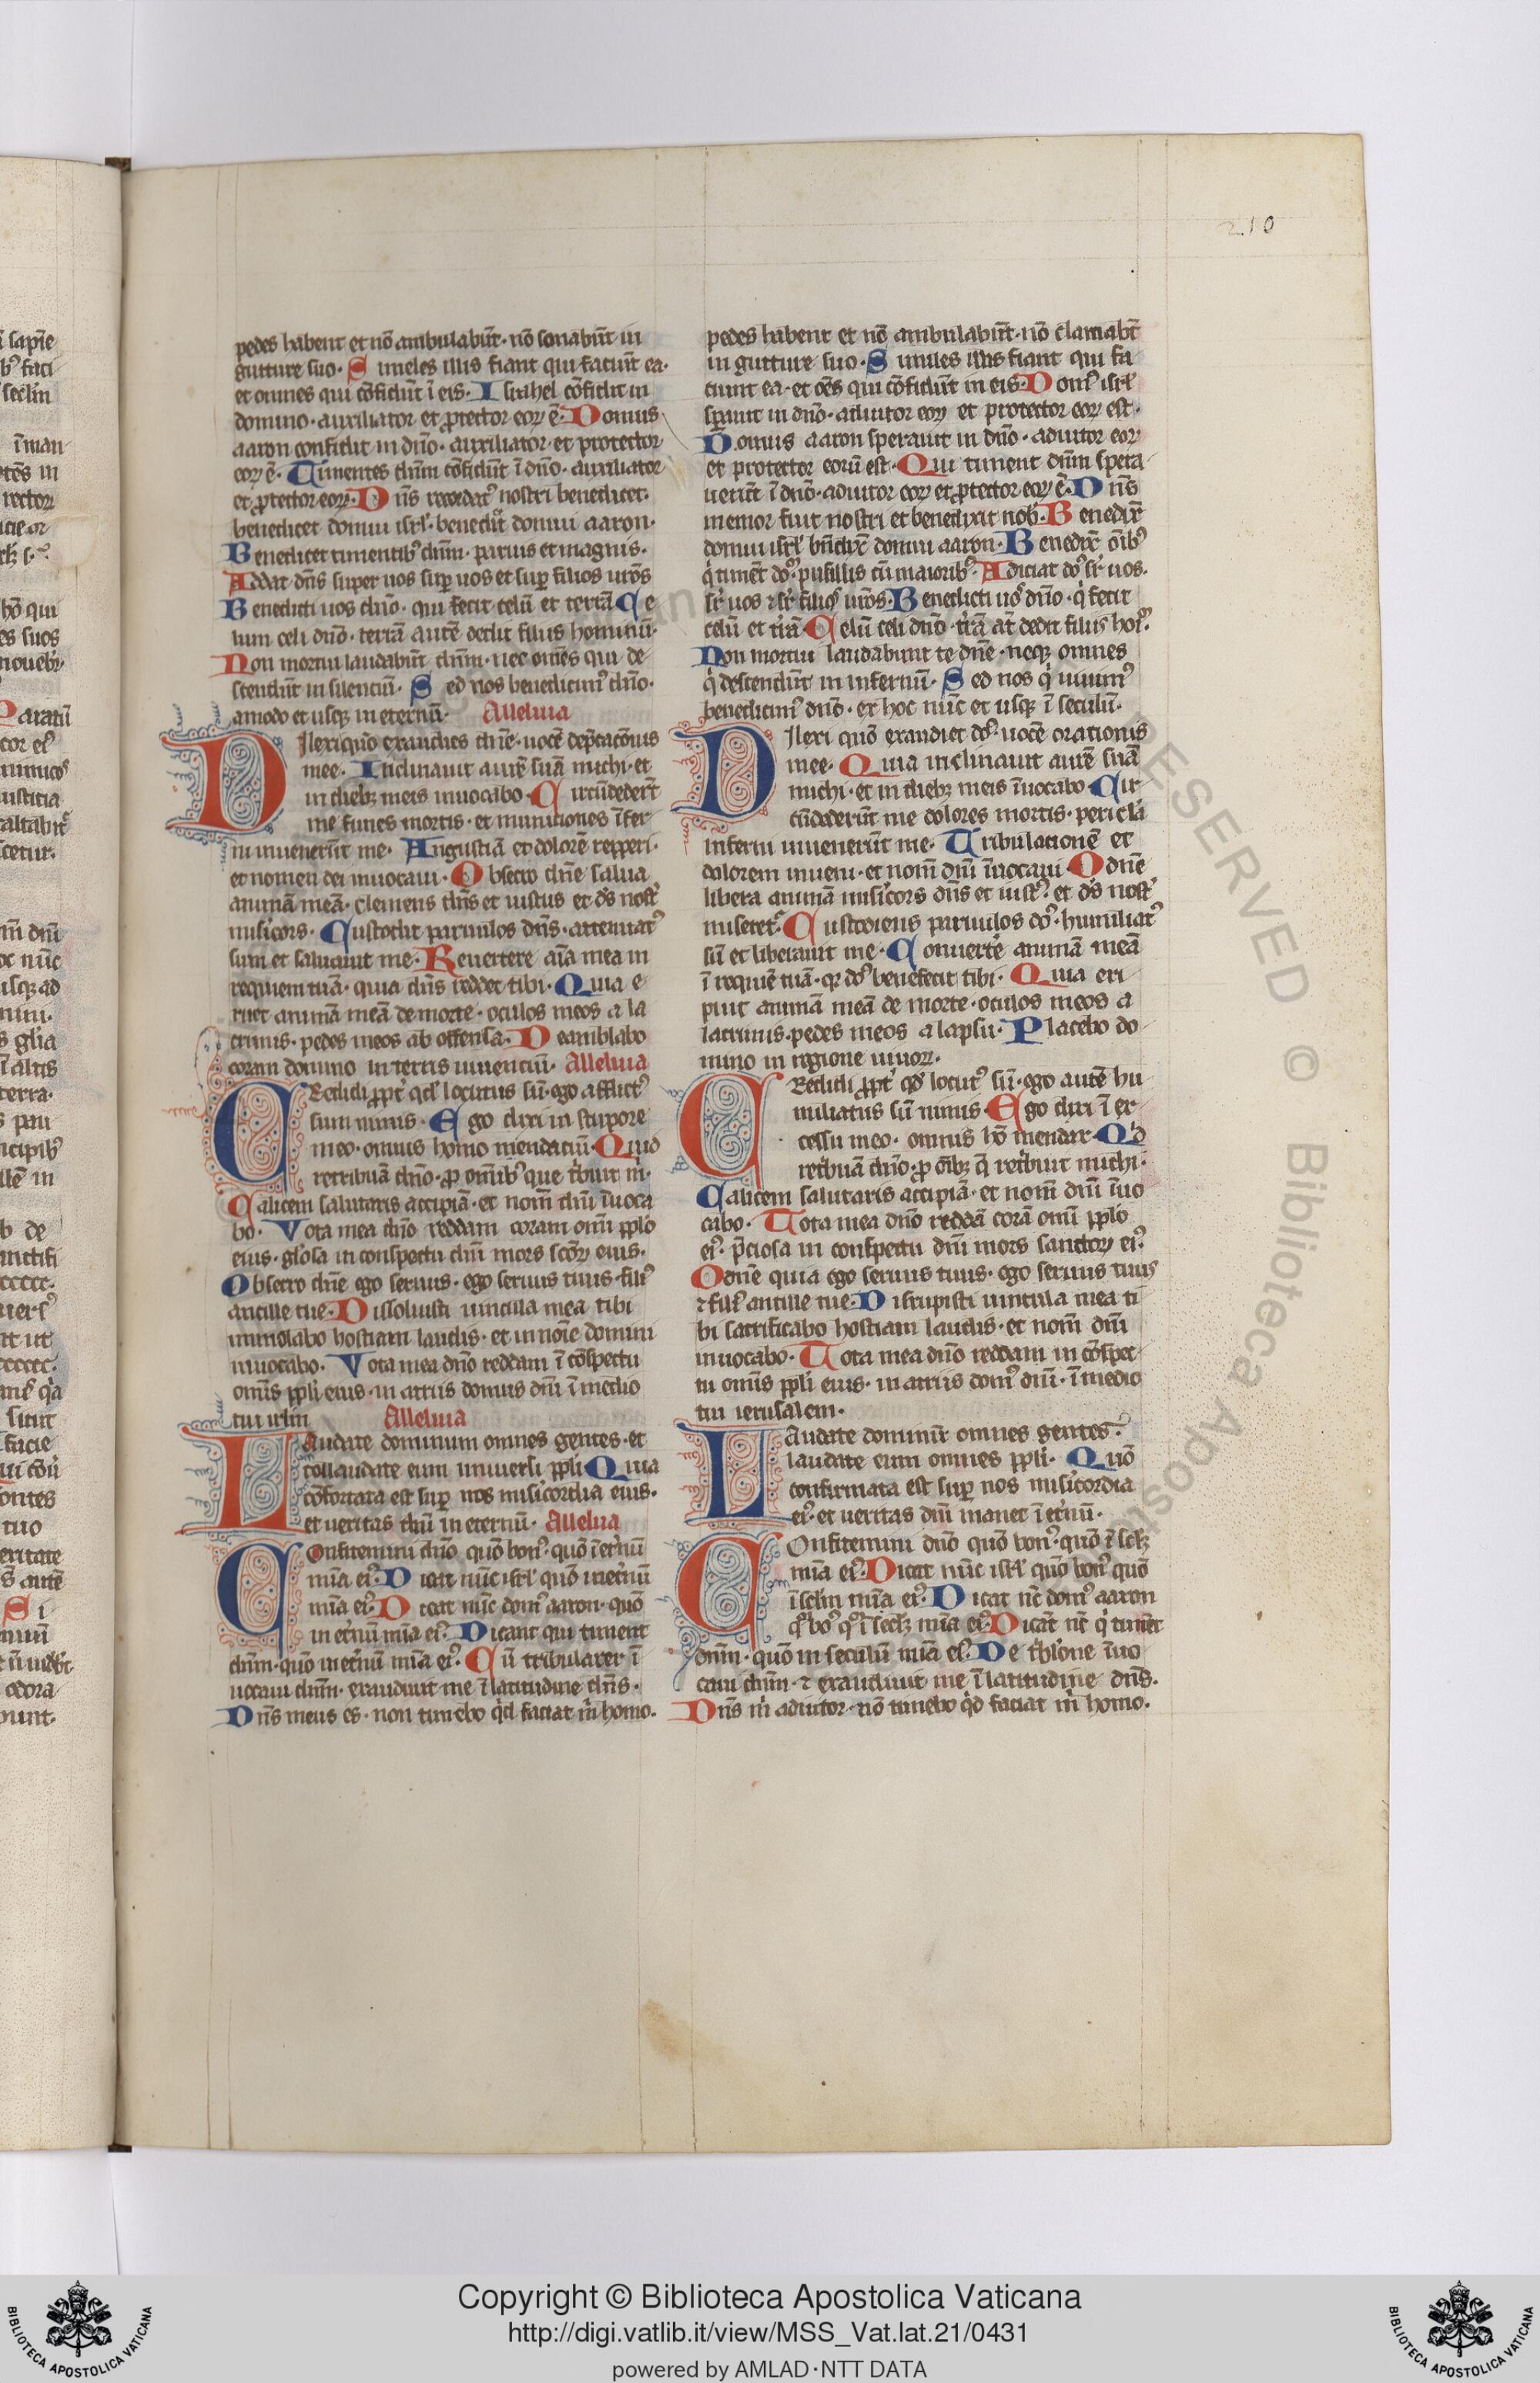 210
pedes habent et nō ambulabūt· nō sonabūt in
gutture suo· Simeles illis fiant qui faciūt ea·
et omnes qui cōfidūt ī eis· Israhel cōfidit in
domino· auxiliator et ꝓtector eoꝝ ē· Domus
aaron confidit in dnō· auxiliator et protector
eoꝝ ē· Timentes dnm̄ cōfidūt ī dnō· auxiliator
et ꝓtector eoꝝ· Dns̄ recordatꝰ nostri benedicet·
benedicet domui isrl̓· benedic̄ domui aaron·
Benedicet timentibꝰ dnm̄· paruis et magnis·
Addat dns̄ super uos sup̱ uos et sup̱ filios uros̄
Benedicti uos dnō· qui fecit celū et terrā Ce
lum celi dnō· terrā autē dedit filiis hominū·
Non mortui laudabūt dnm̄· nec omēs qui de
scendūt in silenciū· Sed nos benedicimꝰ dnō·
amodo et usqꝫ in eternū· Alleluia
Dilexi quō exaudies dnē· uocē dep̄cacōnis
mee· Inclinauit aurē suā michi· et
in diebꝫ meis inuocabo· Circūdeder̄t
me funes mortis· et municiones īfer
ni inuenerūt me· Angustiā et dolorē repperi·
et nomen dei inuocaui· Obsecro dnē salua
animā meā· clemens dns̄ et iustus et ds̄ nost̓
misicors· Custodit paruulos dns̄· attenuatꝰ
sum et saluauit me· Reuertere aīa mea in
requiem tuā· quia dns̄ reddet tibi· Quia e
ruet animā meā de morte· oculos meos a la
crimis· pedes meos ab offensa· Deamblabo
coram domino in terris uiuenciū· Alleluia
Credidi ꝓpt̓ qd̓ locutus sū· ego afflictꝰ
sum nimis· Ego dixi in stupore
meo· omnis homo mendaciū· Quid
retribuā dnō· ꝓ omībꝰ que t̓buit m̓·
Calicem salutaris accipiā· et nom̄ dnī īuoca
bo· Vota mea dnō reddam coram omī pplō
eius· gl̓osa in conspectu dnī mors sc̄oꝝ eius·
Obsecro dnē ego seruus· ego seruus tuus· filiꝰ
ancille tue· Dissoluisti uincula mea tibi
immolabo hostiam laudis· et in noīe domini
inuocabo· Vota mea dnō reddam ī cōspectu
omīs ppli eius· in atriis domus dnī ī medio
tui irl̄m Alleluia
Laudate dominum omnes gentes· et
collaudate eum uniuersi ppli Quia
cōfortata est sup̱ nos misicordia eius·
et ueritas dnī in eternū· Alleluia
Confitemini dnō quō bonꝰ· quō ī et̓nū
mīa eiꝰ· Dicat nūc isrl̓ quō in et̓nū
mīa eiꝰ· Dicat nūc domꝰ aaron· quō
in et̓nū mīa eiꝰ· Dicant qui timent
dnm̄· quō in et̓nū mīa eiꝰ· Cū tribularer ī
uocaui dnm̄· exaudiuit me ī latitudine dns̄·
Dns̄ meus es· non timebo q̓d faciat m̓ homo·
pedes habent et nō ambulabūt· nō clamabt̄
in gutture suo· Similes illis fiant qui fa
ciunt ea· et oēs qui cōfidūt in eis· Domꝰ isrl̓
sꝑauit in dnō· adiutor eoꝝ et protector eoꝝ est·
Domus aaron sperauit in dnō· adiutor eoꝝ
et protector eorū est· Qui timent dnm̄ spera
uerūt ī dnō· adiutor eoꝝ et ꝓtector eoꝝ ē· Dns̄
memor fuit nostri et benedixit nob̓· Benedix̄
domui isrl̓ bn̄dix̄ domui aaron· Benedix̄ oībꝰ
q̓ timēt doꝰ pusillis cū maioribꝰ· Adiciat dō sr̓ uos·
sr̓ uos ⁊ sr̓ filios uros̄· Benedicti uos dnō· q̓ fecit
celū et tr̓ā· Celū celi dnō· tr̓ā at̄ dedit filiis hoīꝰ·
Non mortui laudabunt te dnē· neqꝫ omnes
q̓ descendūt in infernū· Sed nos q̓ uiuimꝰ
benedicimꝰ dnō· ex hoc nūc et usqꝫ ī seculū·
Dilexi quō exaudiet dō· uocē orationis
mee· Quia inclinauit aurē suā
michi· et in diebꝫ meis īuocabo Cir
cūdederūt me dolores mortis· pericl̓a
inferni inuenerūt me· Tribulationē et
dolorem inueni· et nom̄ dnī īuocaui· O dnē
libera animā misicors dns̄ et iustꝰ· et ds̄ nost̓
miseret̓· Custodiens paruulos dō· humiliatꝰ
sū et liberauit me· Conuertē animā meā
ī requiē tuā· qr̄ dō benefecit tibi· Quia eri
puit animā meā de morte· oculos meos a
lacrimis· pedes meos a lapsu· Placebo do
mino in regione uiuoꝝ·
Credidi ꝓpt̓ qd̓ locutꝰ sū· ego autē hu
miliatus sū nimis· Ego dixi ī ex
cessu meo· omnis hō mendax· Qd̓
ret̓buā dnō· ꝓ oībꝫ q̄ ret̓buit michi·
Calicem salutaris accipiā· et nom̄ dnī īuo
cabo· Vota mea dnō reddā corā omī pplō
eiꝰ· p̄ciosa in conspectu dnī mors sanctoꝝ eiꝰ·
O dnē quia ego seruus tuus· ego seruus tuus
⁊ filiꝰ ancille tue· Disrupisti uincula mea ti
bi sacrificabo hostiam laudis· et nom̄ dnī
inuocabo· Vota mea dnō reddam in cōspec
tu omīs ppli eius· in atriis domꝰ dnī· ī medio
tui ierusalem·
Laudate dominū omnes gentes·
laudate eum omnes ppli· Quō
confirmata est sup̱ nos misicordia
eiꝰ· et ueritas dnī manet ī et̓nū·
Confitemini dnō quō bonꝰ· quō ī sclꝫ
mīa eiꝰ· Dicat nūc isrl̓ quō bonꝰ quō
ī scl̄m mīa eiꝰ· Dicat nc̄ domꝰ aaron
qͦ boꝰ qͦ ī seclꝫ mīa eiꝰ· Dicāt nc̄ q̓ timēt
dnm̄· quō in seculū mīa eiꝰ· De t̓bl̓one īuo
caui dnm̄· ⁊ exaudiuit me ī latitudine dns̄·
Dns̄ m̓ adiutor· nō timebo q̓d faciat m̓ homo·
RESERVED © Biblioteca Apostolica
Copyright © Biblioteca Apostolica Vaticana
http://digi.vatlib.it/view/MSS_Vat.lat.21/0431
powered by AMLAD·NTT DATA
BIBLIOTECA APOSTOLICA VATICANA
BIBLIOTECA APOSTOLICA VATICANA